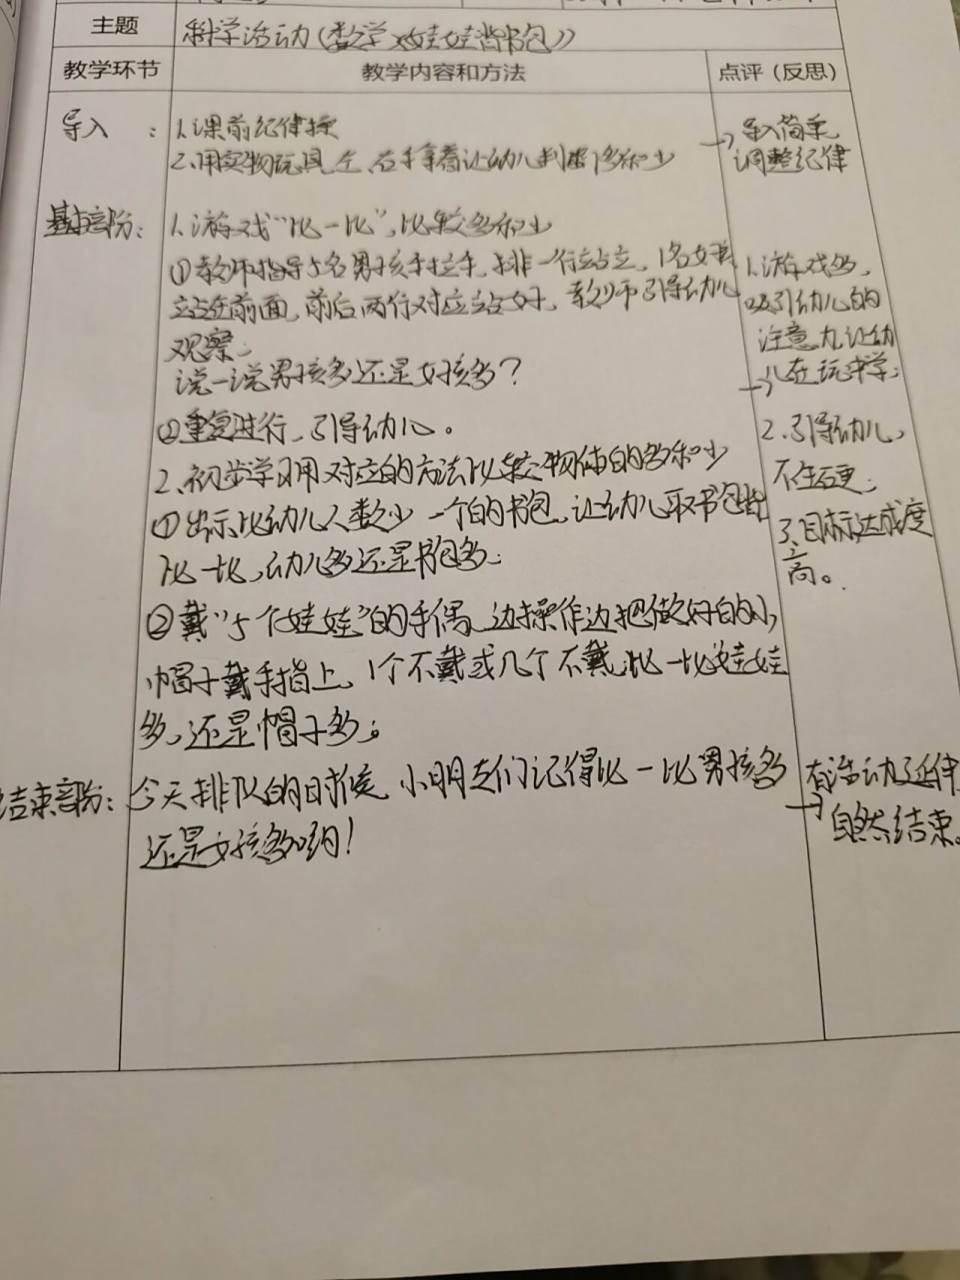 主题 科学活动(数学《娃娃背书包》)
教学环节 教学内容和方法 点评（反思）
导入： 1.课前纪律操
2.用实物玩具左、右手拿着让幼儿判断多和少
→导入简单
调整纪律
基本部份： 1.游戏“比一比”，比较多和少
①教师指导5名男孩手拉手，排一行站立，1名女孩
站在前面，前后两行对应站好，教师引导幼儿
观察：
说一说男孩多还是女孩多？
②重复进行，引导幼儿。
2、初步学习用对应的方法比较物体的多和少
①出示比幼儿人数少一个的书包，让幼儿取书包背
比一比，幼儿多还是书包多；
②戴“5个娃娃”的手偶，边操作边把做好的小
帽子戴手指上，1个不戴或几个不戴，比一比娃娃
多，还是帽子多；
1.游戏多，
吸引幼儿的
注意力，让幼
→儿在玩中学；
2.引导幼儿，
不生硬；
3、目标达成度
高。
结束部份： 今天排队的时候，小朋友们记得比一比男孩多
还是女孩多哟！
→有活动延伸
自然结束。